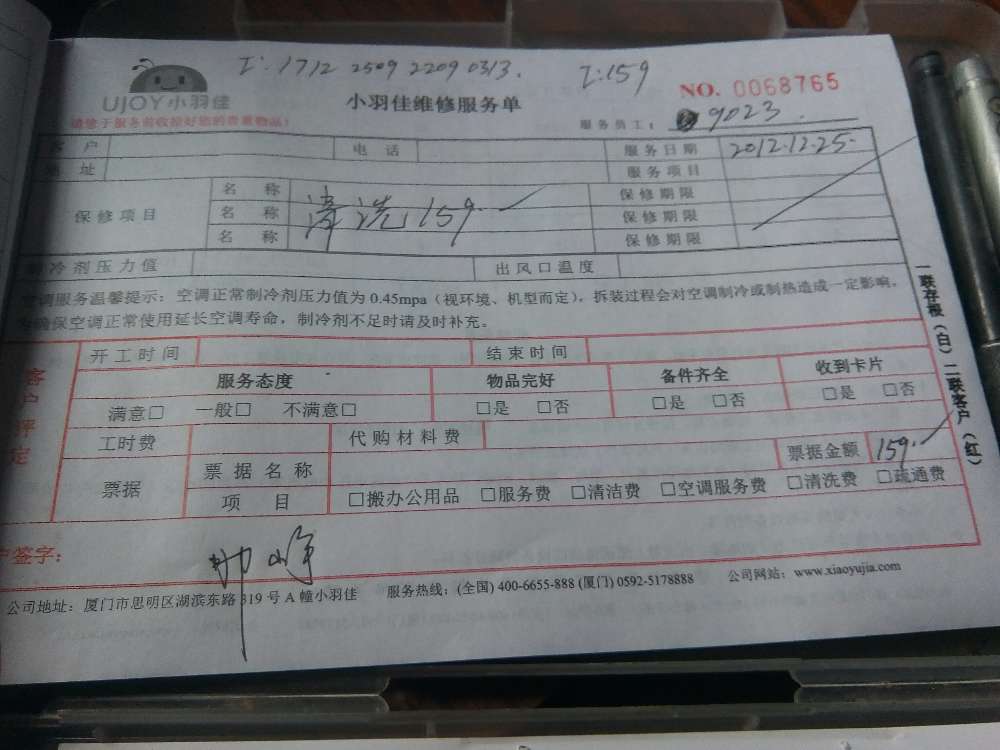 1712 2509 2209 0313. 工:159
UJOY小羽佳
小羽佳维修服务单
NO. 0068765
请您于服务前收拾好您的贵重物品!
服务员工: 9023.
客 户 电 话 服务日期 2012.12.25.
地 址 服务项目
保修项目 名 称 清洗159. 保修期限
名 称 保修期限
名 称 保修期限
制冷剂压力值 出风口温度
空调服务温馨提示:空调正常制冷剂压力值为 0.45mpa(视环境、机型而定),拆装过程会对空调制冷或制热造成一定影响。
为确保空调正常使用延长空调寿命,制冷剂不足时请及时补充。
一联存根(白)二联客户(红)
客户评定
开工时间 结束时间
服务态度 物品完好 备件齐全 收到卡片
满意□ 一般□ 不满意□ □是 □否 □是 □否 □是 □否
工时费 代购材料费
票据 票据名称 票据金额 159.
项 目 □搬办公用品 □服务费 □清洁费 □空调服务费 □清洗费 □疏通费
户签字:
公司地址:厦门市思明区湖滨东路 319 号 A 幢小羽佳 服务热线:(全国) 400-6655-888 (厦门) 0592-5178888 公司网站:www.xiaoyujia.com